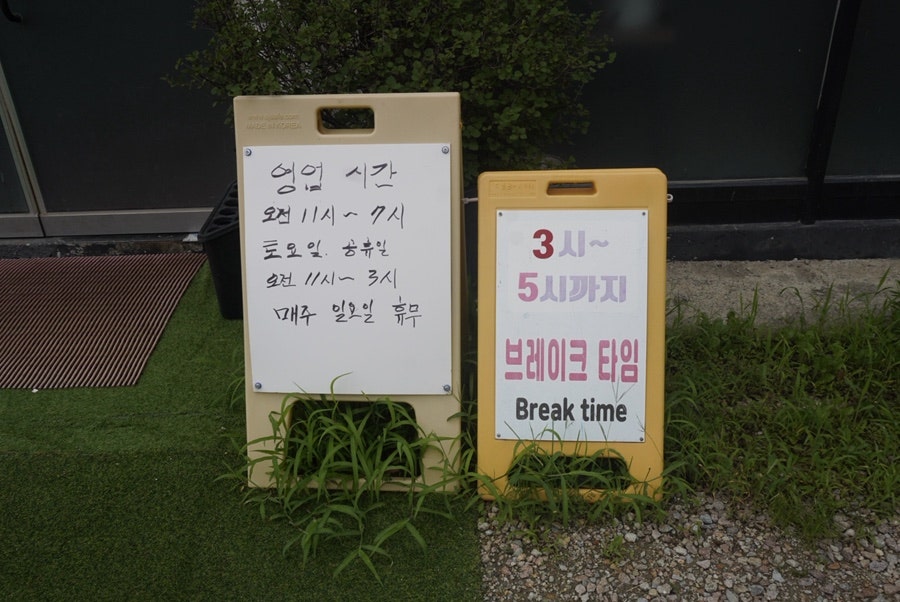 MADE IN KOREA
영업 시간
오전 11시~ 7시
토요일. 공휴일
오전 11시~ 3시
매주 일요일 휴무
3시~
5시까지
브레이크 타임
Break time